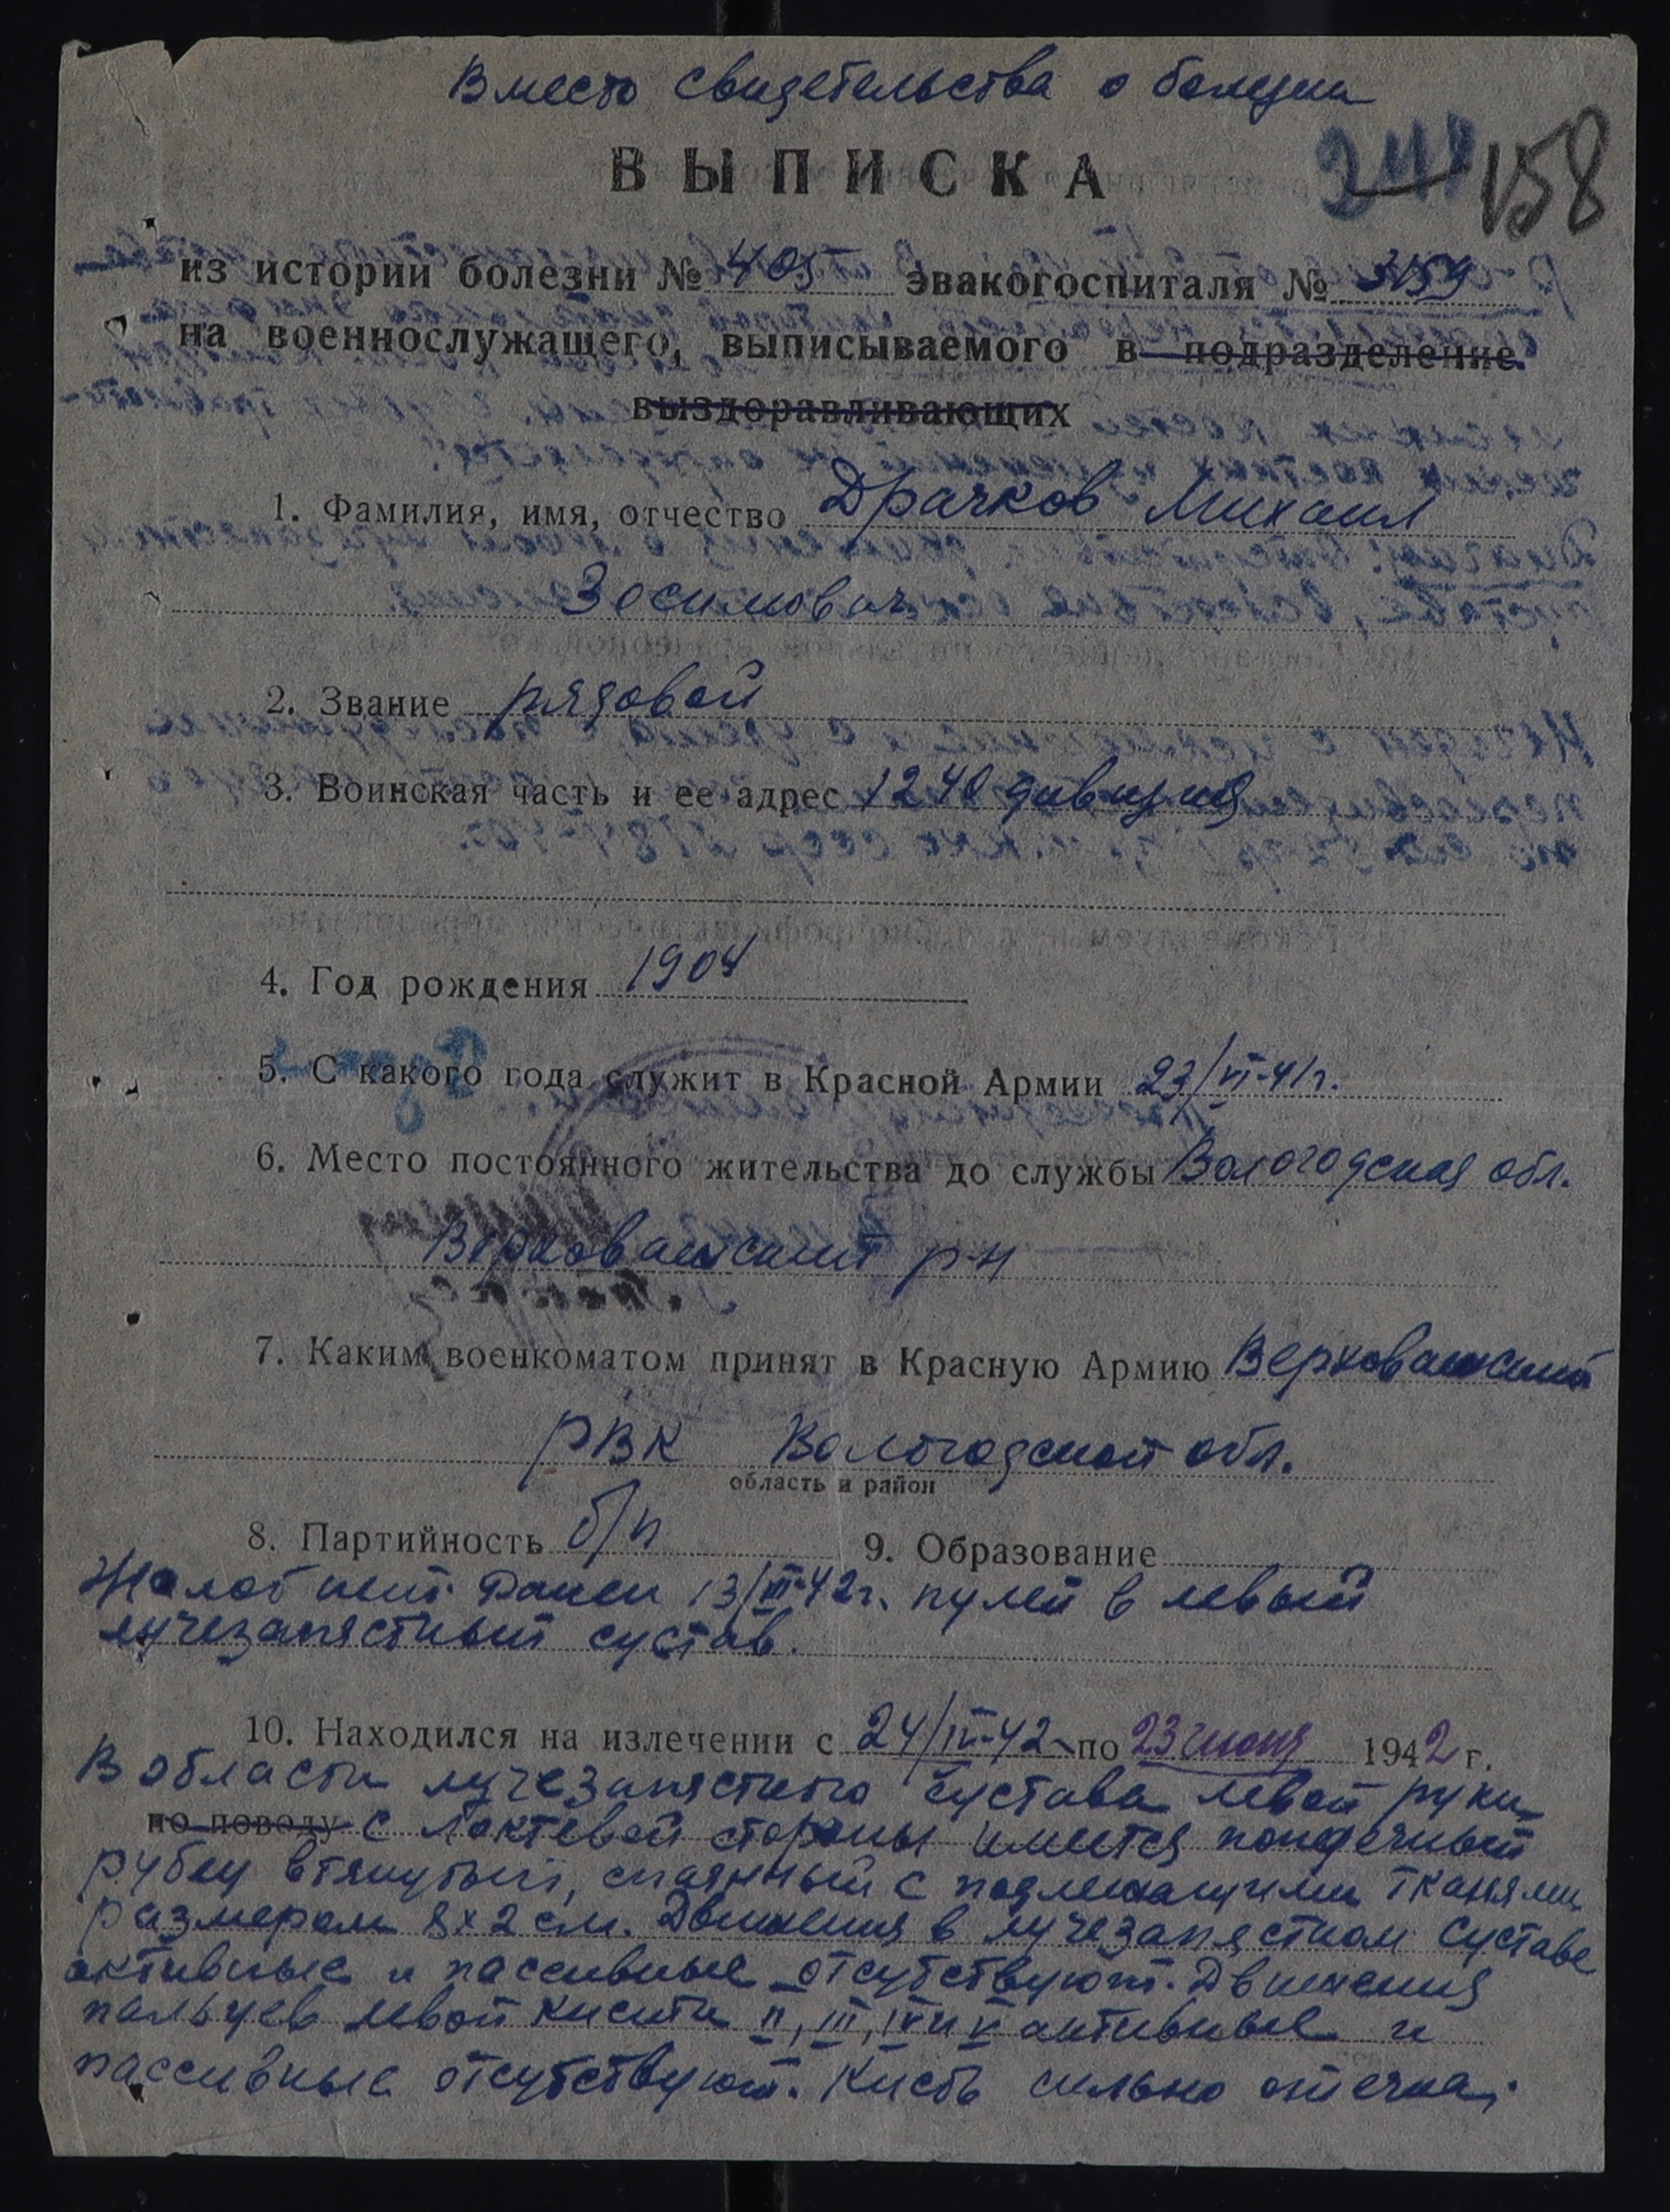 Вместо свидетельства о болезни
ВЫПИСКА
158
из истории болезни № 405 эвакогоспиталя № 3159
на военнослужащего, выписываемого в подразделение
выздоравливающих
1. Фамилия, имя, отчество Драчков Михаил
Зосимович
2. Звание рядовой
3. Воинская часть и ее адрес 1240 дивизия
4. Год рождения 1904
5. С какого года служит в Красной Армии 23/VI-41г.
6. Место постоянного жительства до службы Вологодская обл.
Верховажский р-н
7. Каким военкоматом принят в Красную Армию Верховажский
РВК Вологодской обл.
область и район
8. Партийность б/п 9. Образование
Жалоб нет. Ранен 13/III-42г. пулей в левый
лучезапястный сустав.
10. Находился на излечении с 24/IV-42 по 23 июня 1942 г.
В области лучезапястного сустава левой руки
по поводу с локтевой стороны имеется поперечный
рубец втянутый, спаянный с подлежащими тканями
размером 8х2 см. Движения в лучезапястном суставе
активные и пассивные отсутствуют. Движения
пальцев левой кисти II, III, IV и V активные и
пассивные отсутствуют. Кисть сильно отечна,